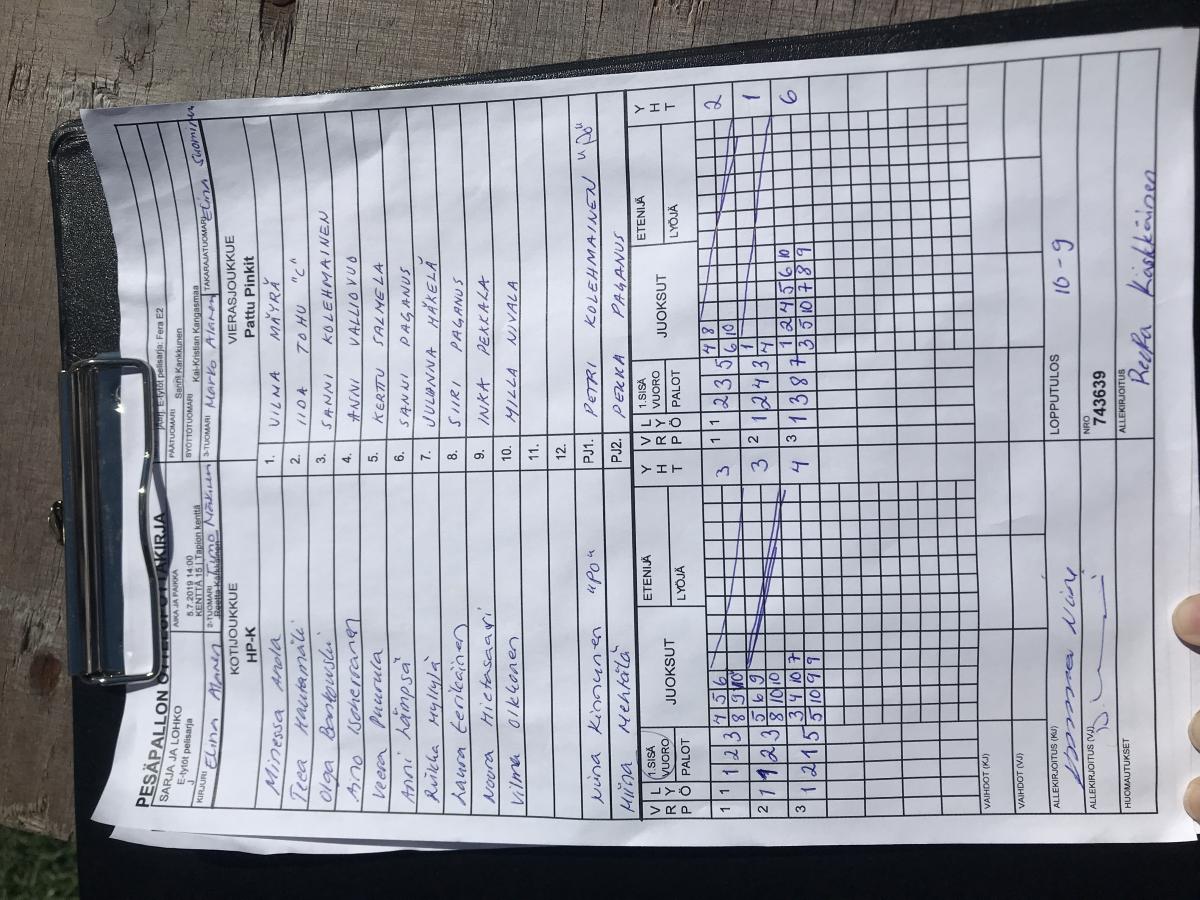 PESÄPALLON OTTELUPÖYTÄKIRJA
SARJA JA LOHKO
E-tytöt pelisarja
J
AIKA JA PAIKKA
5.7.2019 14:00
KENTTÄ 15 | Tapion kenttä
E-tytöt pelisarja: Fera E2
PÄÄTUOMARI Sanni Kankkunen
SYÖTTÖTUOMARI Kai-Kristian Kangasmaa
KIRJURI Elina Alanen
2-TUOMARI Timo Näkinen
3-TUOMARI Marko Alanen
TAKARAJATUOMARI Elina Suominen
KOTIJOUKKUE
HP-K
VIERASJOUKKUE
Pattu Pinkit
Minessa Anola 1. VILMA MÄYRÄ
Teea Knutamäki 2. IIDA TOHU "C"
Olga 3. SANNI KOLEHMAINEN
Aino Isoherranen 4. ANNI VALLOVUO
Veera Puurula 5. KERTU SALMELA
Anni Lämpsä 6. SANNI PAGANUS
Riikka Myllylä 7. JULIANNA MÄKELÄ
Laura Eerikäinen 8. SIIRI PAGANUS
Noora Hietasaari 9. INKA PEKKALA
Vilma Olkkonen 10. MILLA NIVALA
11.
12.
Niina Kinnunen "PO" PJ1. PETRI KOLEHMAINEN "PÖ"
Miina Mehtälä PJ2. PEKKA PAGANUS
V R P L Y Ö 1.SISÄ VUORO PALOT JUOKSUT ETENIJÄ LYÖJÄ Y H T V R P L Y Ö 1.SISÄ VUORO PALOT JUOKSUT ETENIJÄ LYÖJÄ Y H T
1 1 1 2 3 4 5 6 3 1 1 2 3 5 4 8 2
8 9 10 6 10
2 1 1 2 3 5 6 9 3 2 1 2 4 3 1 1
8 10 10 4
3 1 2 1 5 3 4 10 7 4 3 1 3 8 7 1 2 4 5 6 10 6
5 10 9 9 3 5 10 7 8 9
VAIHDOT (KJ)
VAIHDOT (VJ)
ALLEKIRJOITUS (KJ)
LOPPUTULOS 10 - 9
ALLEKIRJOITUS (VJ)
NRO
743639
HUOMAUTUKSET
ALLEKIRJOITUS
Reeta Kärkkäinen